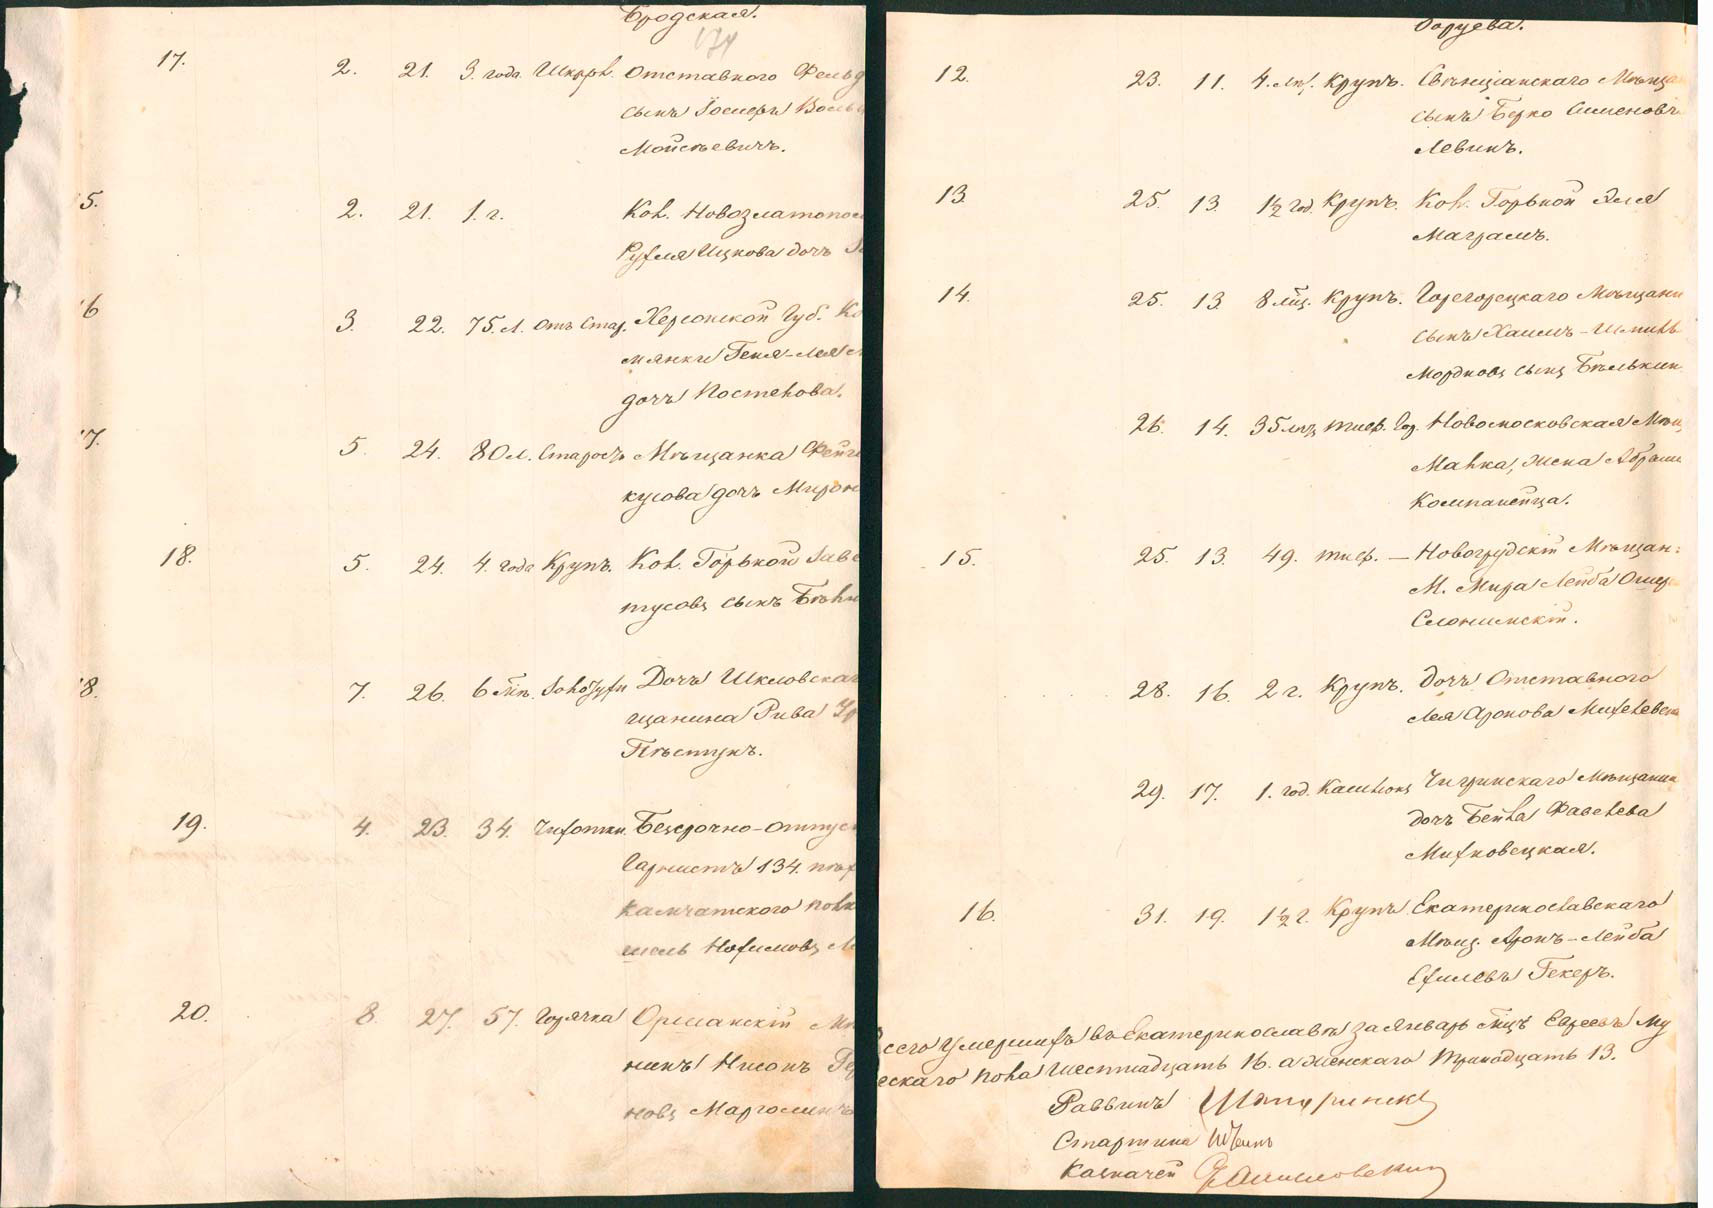 Бродская.
174
17. 2. 21. 3. года Отставного
сынъ Вольф
Мойсѣевичъ.
5. 2. 21. 1. г. Кол. Новозлатопол
Рухля Ицкова дочь
6 3. 22. 75. л. отъ стар. Херсонской Губ. Ко
мянки Геня-Лея
дочь
7. 5. 24. 80 л. Старость Мѣщанка Фейг
кусова дочь Мирон
18. 5. 24. 4. года Крупъ. Кол. Горькой Заве
тусовъ сынъ
8. 7. 26. 6 Дочь Шкловскаг
щанина Рива
Пѣстунъ.
19. 4. 23. 34. Чахотки Безсрочно-отпуск
Гарнистъ 134. пѣх
Камчатского полк
шель Нохимовъ
20. 8. 27. 57. Горячка Оршанскій Мѣ
нинъ Нисонъ Гер
новъ Марголинъ
Боруева.
12. 23. 11. 4. лѣт. Крупъ. Свѣнцянскаго Мѣщан
сынъ Берко Сименовъ
Левинъ.
13. 25. 13. 1½ год. Крупъ. Кол. Горькой Эля
Маграмъ.
14. 25. 13 8 мѣц. Крупъ. Горегорецкаго Мѣщани
сынъ Хаимъ-Шмиль
Мордковъ сынъ Бѣлькин
26. 14. 35 лѣтъ тиф. Новомосковская Мѣщ
Малка, жена Абрам
Компанейца.
15. 25. 13. 49. тиф. — Новогрудскій Мѣщан:
М. Мира Лейба Ошер
Слонимскій.
28. 16. 2 г. Крупъ. дочь Отставного
Лея Аронова Михелевска
29. 17. 1. год. Кашлюкъ Чигринскаго Мѣщанин
дочь Бейла Фавелева
Митковецкая.
16. 31. 19. 1½ г. Крупъ Екатеринославскаго
Мѣщ. Аронъ-Лейба
Ехилевъ Гекеръ.
сего умершихъ въ Екатеринославѣ за Январь Мцъ Евреевъ Му
ескаго пола шестнадцать 16. а женскаго тринадцать 13.
Раввинъ
Старшина
Казначей